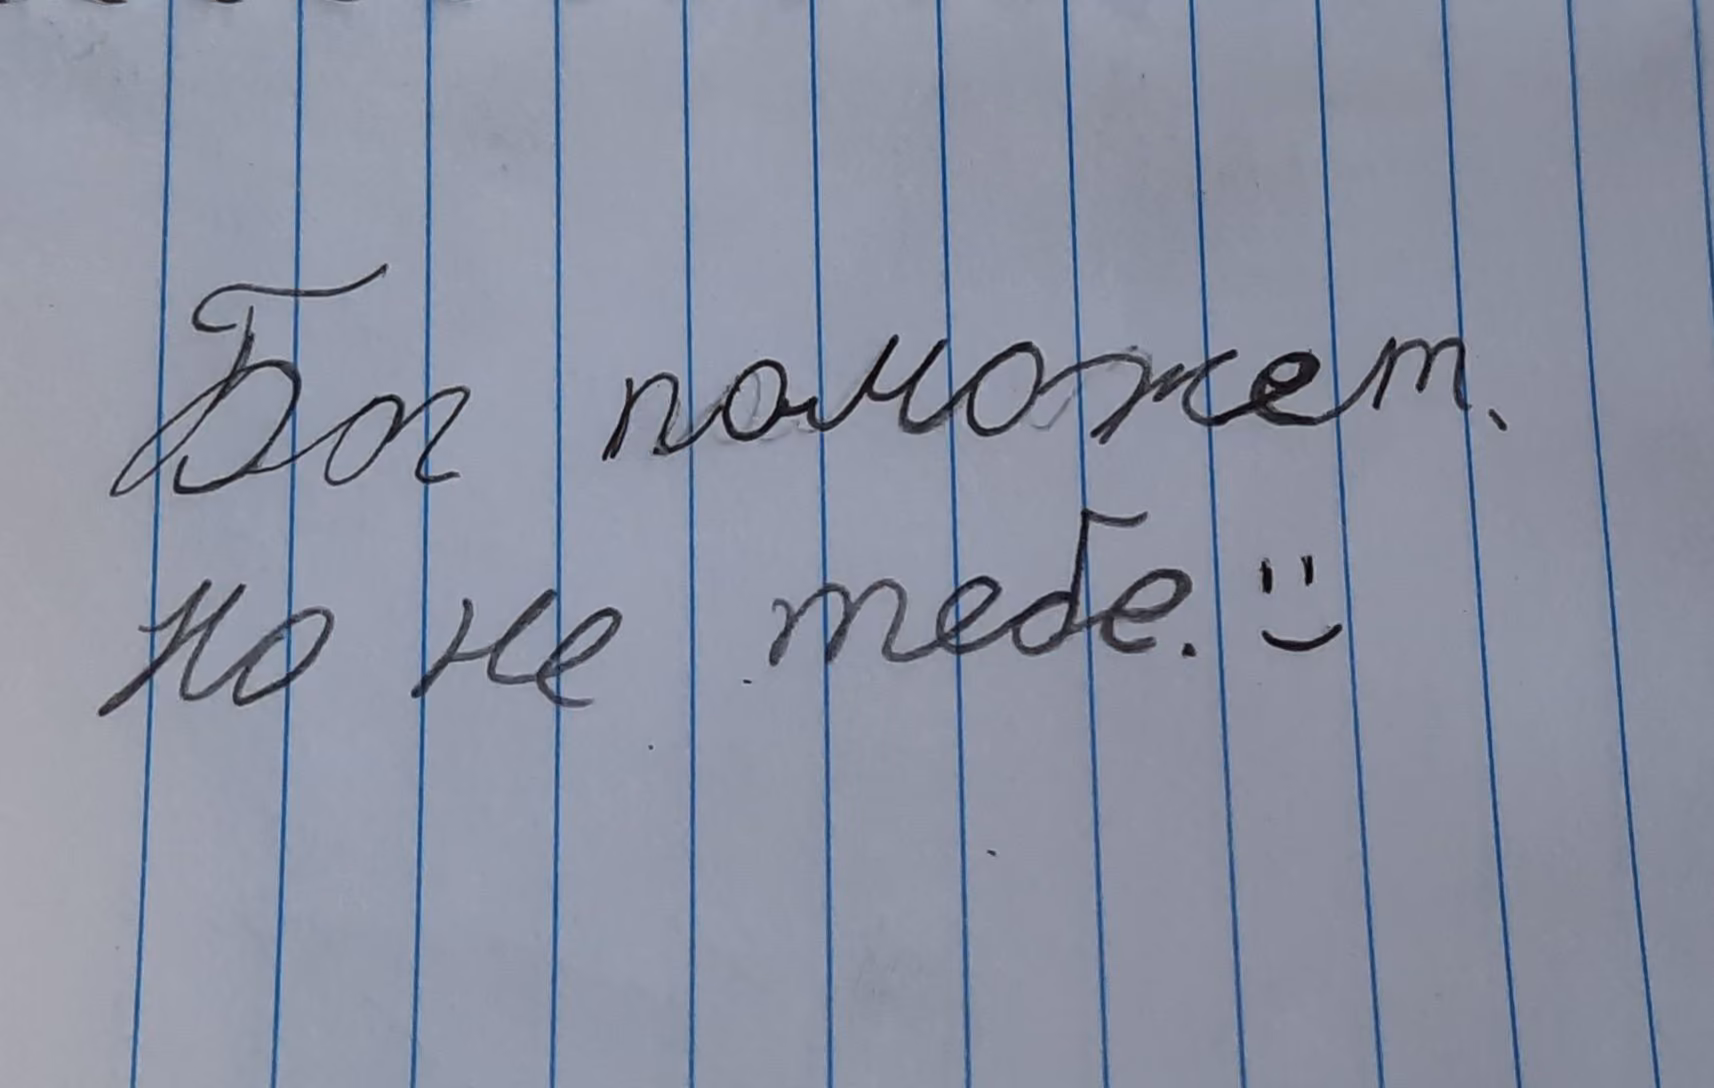 Бог поможет.
Но не тебе. :)